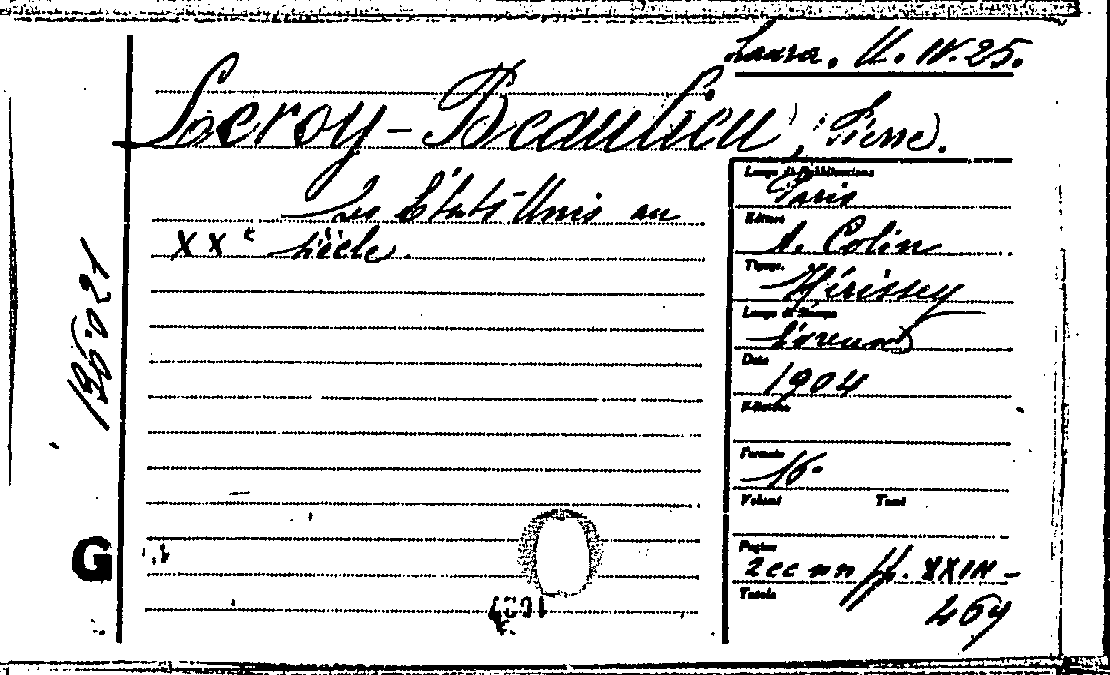 Laura. U. IV. 25.
Leroy-Beaulieu, Pierre.
Les États-Unis au
XXe siècle.
Luogo di Pubblicazione
Paris
Editore
A. Colin
Tipogr.
Hérissey
Luogo di Stampa
Évreux
Data
1904
Edizione
Formato
16°
Volumi Tomi
Pagine
2 cc nn pp. XXIII-
469
Tavole
G